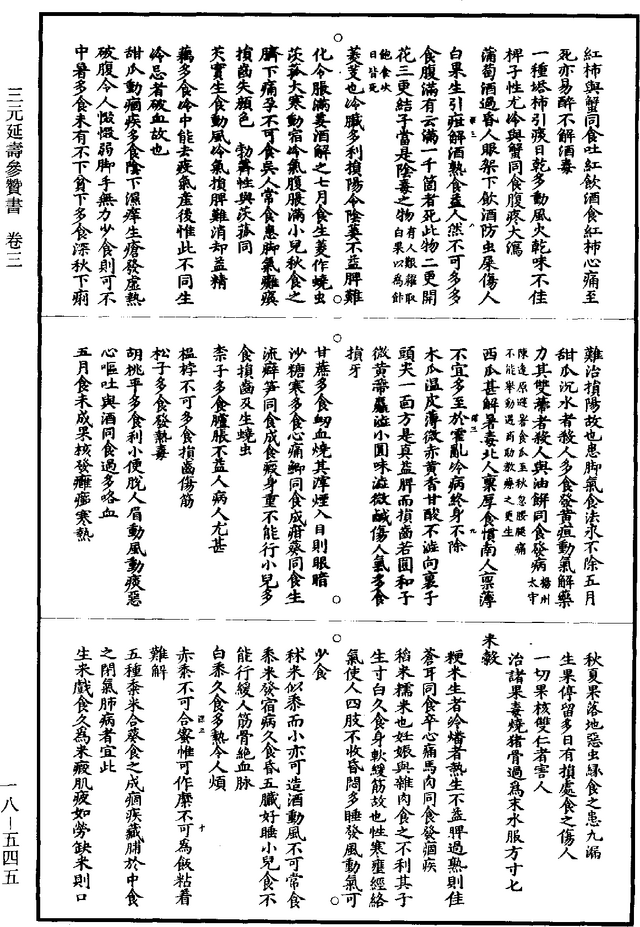 三元延壽參贊書 卷三
一八－五四五
紅柿與蟹同食吐紅飲酒食紅柿心痛至
死亦易醉不解酒毒
一種塔柿引痰日乾多動風火乾味不佳
椑子性尤冷與蟹同食腹疼大瀉
蒲萄酒過昏人眼架下飲酒防虫屎傷人
白果生引疳解酒熟食益人然不可多多
食腹滿有云滿一千箇者死此物二更開
花三更結子當是陰毒之物有人艱糴取白果以爲飯
飽食次日皆死
菱芰也冷臟多利損陽令陰萎不益脾難
化令脹滿姜酒解之七月食生菱作蟯虫
茨菰大寒動宿冷氣腹脹滿小兒秋食之
臍下痛孕不可食吳人常食患脚氣癱瘓
損齒失顏色 勃薺性與茨菰同
芡實生食動風冷氣損脾難消却益精
藕多食冷中能去疫氣産後惟此不同生
冷忌者破血故也
甜瓜動痼疾多食陰下濕痒生瘡發虛熱
破腹令人惙惙弱脚手無力少食則可不
中暑多食未有不下貧下多食深秋下痢
難治損陽故也患脚氣食法永不除五月
甜瓜沉水者殺人多食發黃疸動氣解藥
力其雙蒂者殺人與油餅同食發病楊州太守
陳逢原避暑食瓜至秋忽腰腿痛不能舉動遇商助教療之更生
西瓜甚解暑毒北人稟厚食慣南人稟薄
不宜多至於霍亂冷病終身不除
木瓜温皮薄微赤黃香甘酸不澁向裏子
頭尖一面方是真益脾而損齒若圓和子
微黃蒂麤澁小圓味澁微鹹傷人氣多食
損牙
甘蔗多食衂血燒其滓煙入目則眼暗
沙糖寒多食心痛鯽同食成疳葵同食生
流癖笋同食成食瘕身重不能行小兒多
食損齒及生蟯虫
柰子多食臚脹不益人病人尤甚
榅桲不可多食損齒傷筋
松子多食發熱毒
胡桃平多食利小便脫人眉動風動痰惡
心嘔吐與酒同食過多咯血
五月食未成果核發癰癤寒熱
秋夏果落地惡虫緣食之患九漏
生果停留多日有損處食之傷人
一切果核雙仁者害人
治諸果毒燒猪骨過爲末水服方寸七
米穀
粳米生者冷燔者熱生不益脾過熟則佳
蒼耳同食卒心痛馬肉同食發痼疾
稻米糯米也妊娠與雜肉食之不利其子
生寸白久食身軟緩筋故也性寒壅經絡
氣使人四肢不收昏悶多睡發風動氣可
少食
秫米似黍而小亦可造酒動風不可常食
黍米發宿病久食昏五臟好睡小兒食不
能行緩人筋骨絶血脉
白黍久食多熱令人煩
赤黍不可合蜜惟可作糜不可爲飯粘着
難解
五種黍米合葵食之成痼疾藏脯於中食
之閉氣肺病者宜此
生米戲食久爲米瘕肌瘦如勞缺米則口